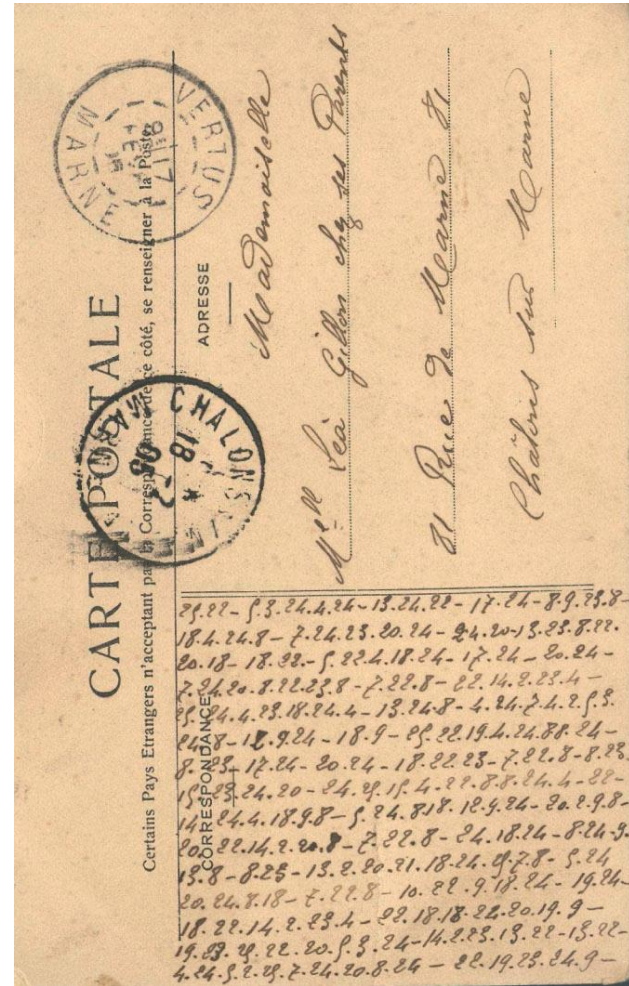 CARTE POSTALE
Certains Pays Etrangers n'acceptant pas la Correspondance de ce côté, se renseigner à la Poste.
VERTUS
MARNE
CHALONS
18
05
ADRESSE
Mademoiselle
Melle Léa Gillon chez ses Parents
31 Rue de Marne 31
Châlons sur Marne
CORRESPONDANCE
25.22-5.3.24.4.24-13.24.22-17.24-8.9.23.8-
18.4.24.8-7.24.23.20.24-24.20-13.23.8.22.
20.18-18.22-5.22.4.18.24-17.24-20.24-
7.24.20.8.22.23.8-7.22.8-22.14.2.23.4-
25.24.4.23.18.24.4-13.24.8-4.24.7.4.2.5.3.
24.8-12.9.24-18.9-25.22.19.4.24.88.24-
8.23-17.24-20.24-18.22.23-7.22.8-8.23.
15.23.24.20-24.25.15.4.22.8.8.24.4-22-
14.24.4.18.9.8-5.24.818.12.9.24-20.2.9.8-
20.22.14.2.20.8-7.22.8-24.18.24-8.24.9.
13.8-8.25-13.2.20.21.18.24.25.7.8-5.24
20.24.8.18-7.22.8-10.22.9.18.24-19.24-
18.22.14.2.23.4-22.18.18.24.20.19.9-
19.23.25.22.20.5.3.24-14.2.23.13.22-13.22-
4.24.5.2.25.7.24.20.8.24-22.19.23.24.9-